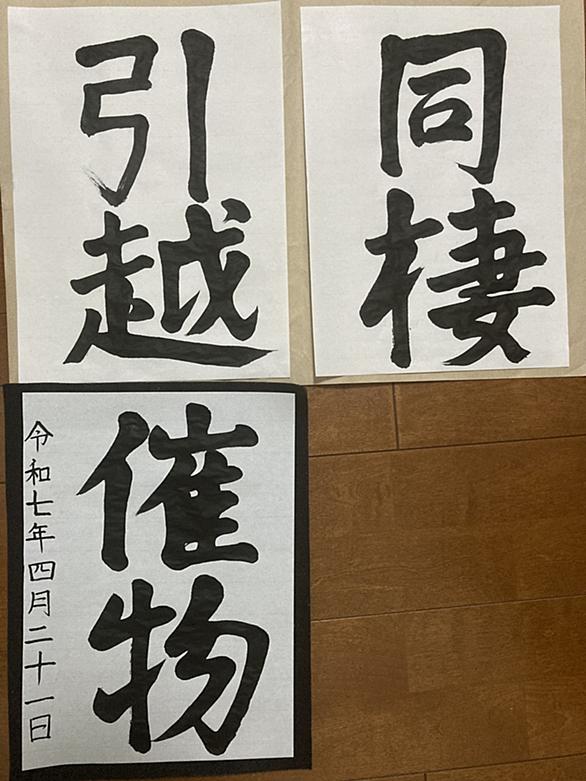 同棲
引越
催物
令和七年四月二十一日